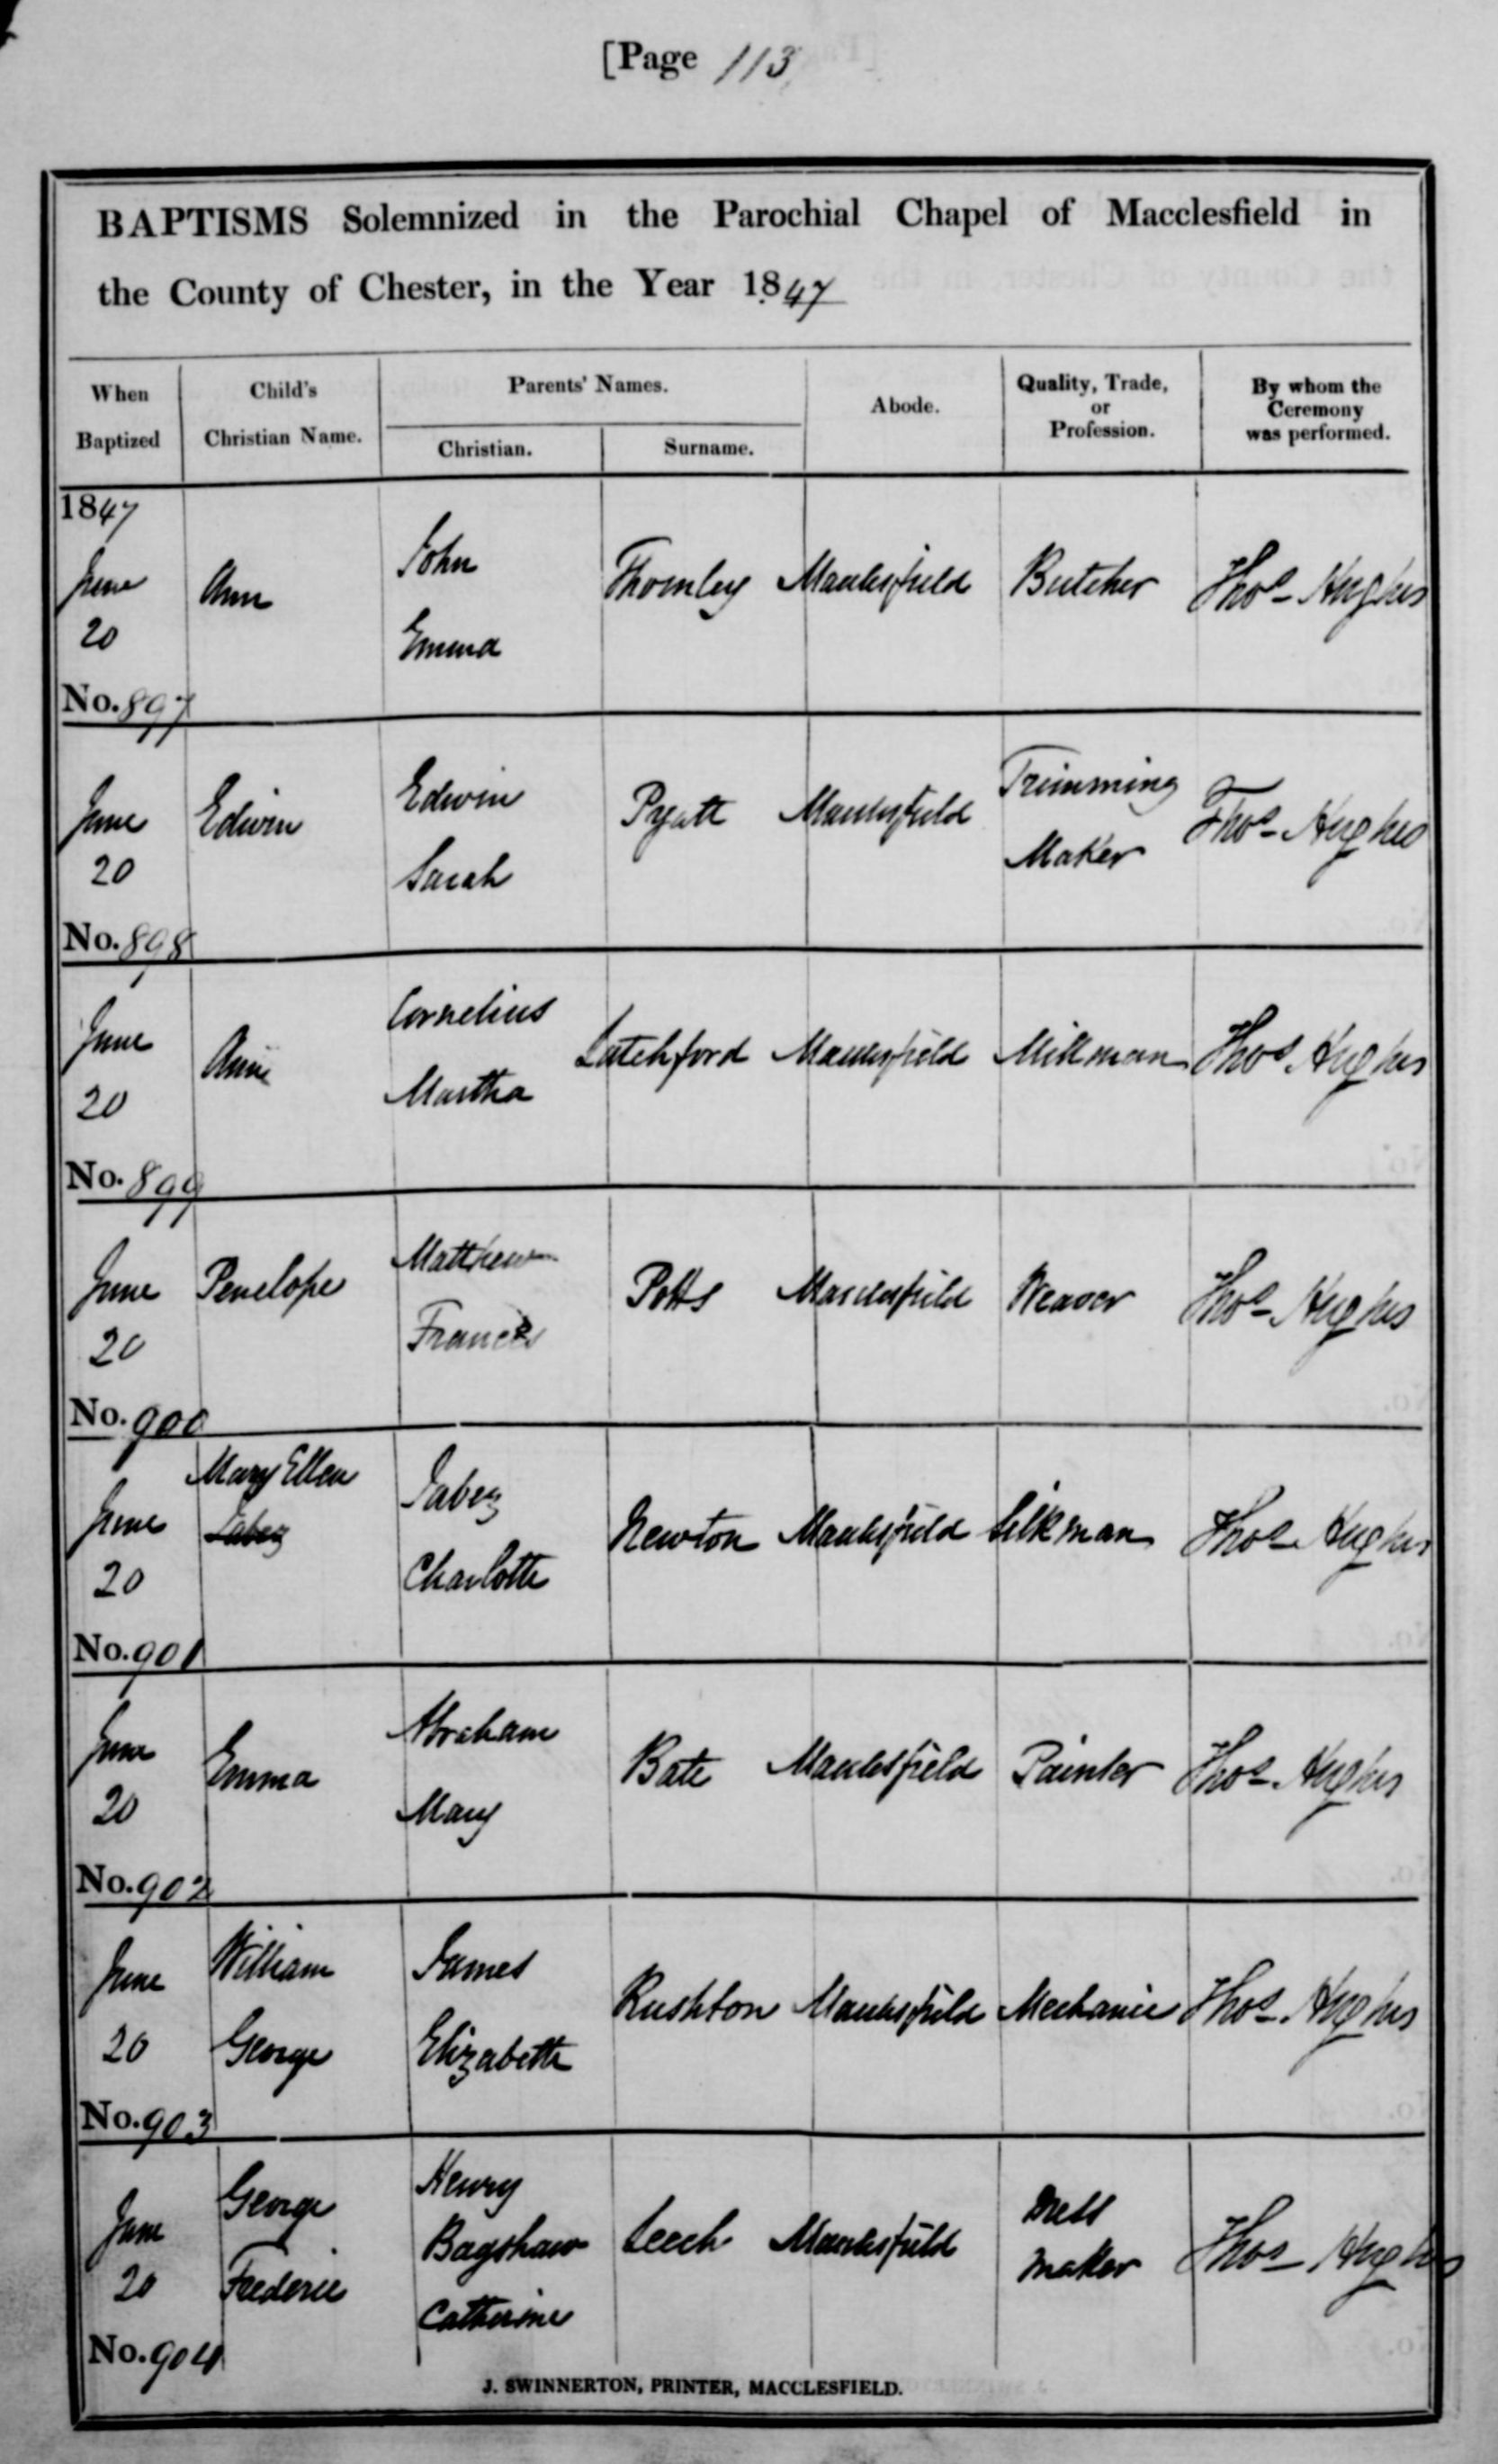 [Page 113
BAPTISMS Solemnized in the Parochial Chapel of Macclesfield in
the County of Chester, in the Year 1847
When Baptized
Child's Christian Name.
Parents' Names.
Christian.
Surname.
Abode.
Quality, Trade, or Profession.
By whom the Ceremony was performed.
1847
June 20
Ann
John
Emma
Thornley
Macclesfield
Butcher
Thos Hughes
No. 897
June 20
Edwin
Edwin
Sarah
Pyatt
Macclesfield
Trimming
Maker
Thos Hughes
No. 898
June 20
Cornelius
Martha
Latchford
Macclesfield
Milkman
Thos Hughes
No. 899
June 20
Penelope
Matthew
Frances
Potts
Macclesfield
Weaver
Thos Hughes
No. 900
June 20
Mary Ellen
Jabez
Jabez
Charlotte
Newton
Macclesfield
Silkman
Thos Hughes
No. 901
June 20
Emma
Abraham
Mary
Bate
Macclesfield
Painter
Thos Hughes
No. 902
June 20
William
George
James
Elizabeth
Rushton
Macclesfield
Mechanic
Thos Hughes
No. 903
June 20
George
Frederic
Henry
Bagshaw
Catherine
Leech
Macclesfield
maker
Thos Hughes
No. 904
J. SWINNERTON, PRINTER, MACCLESFIELD.